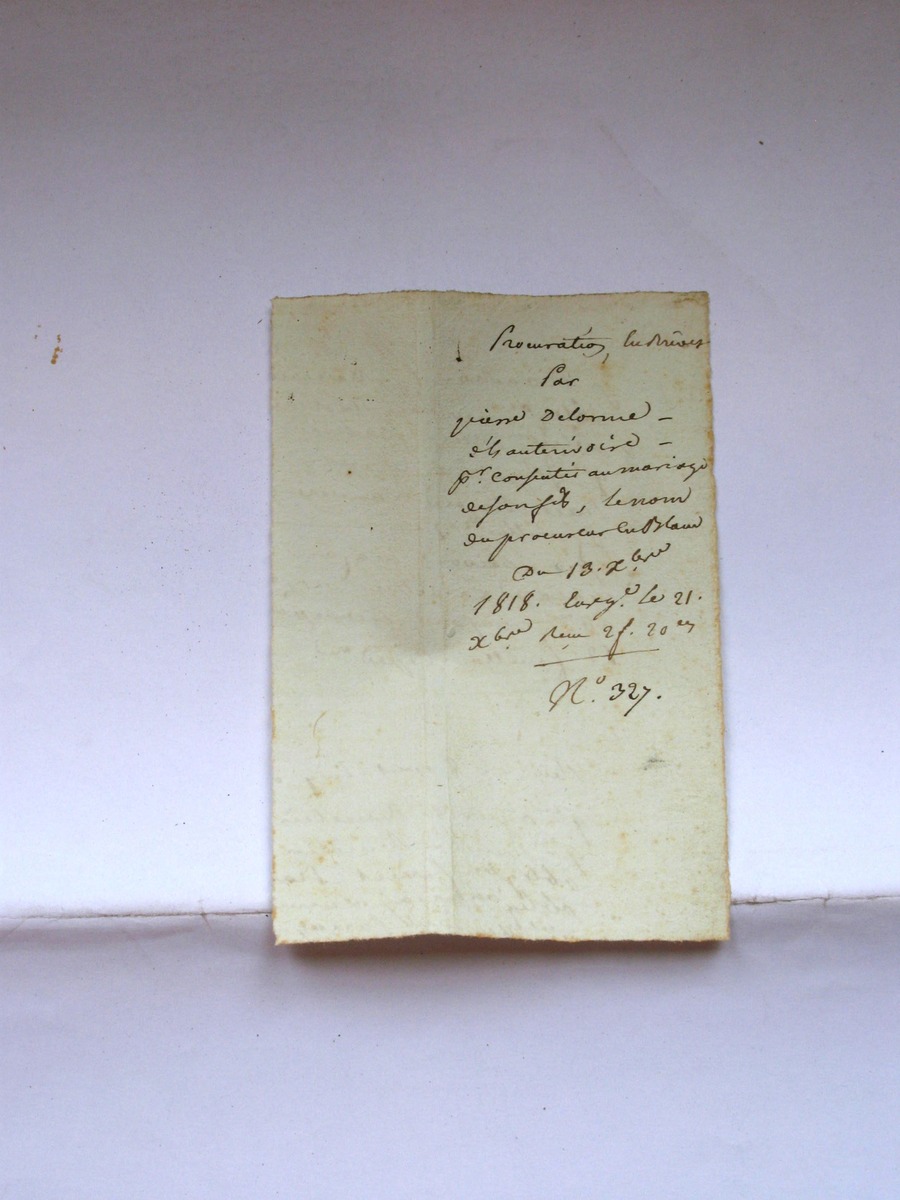 Procuration, en Brevet
Par
pierre Delorme –
d'hauterivoire –
pr. Consentir au mariage
de son fils, le nom
du procureur en Blanc
Du 13. Xbre
1818. Enregé. le 21.
Xbre Reçu 2f. 20 ces
N.o 327.